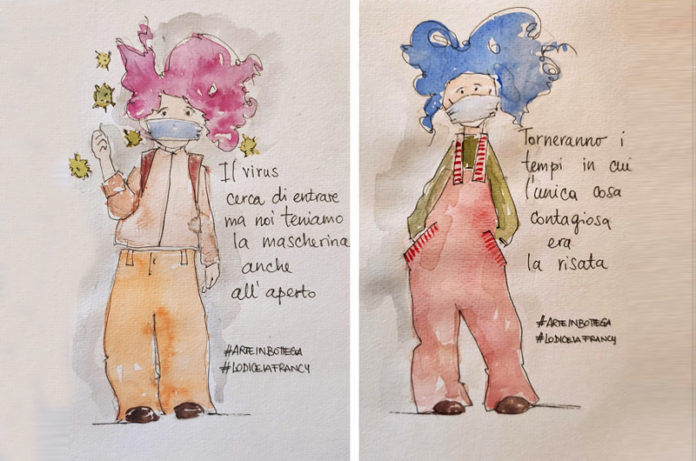 Il virus
cerca di entrare
ma noi teniamo
la mascherina
anche
all'aperto
#ARTEINBOTTEGA
#LODICELAFRANCY
Torneranno i
tempi in cui
l'unica cosa
contagiosa
era
la risata
#ARTEINBOTTEGA
#LODICELAFRANCY